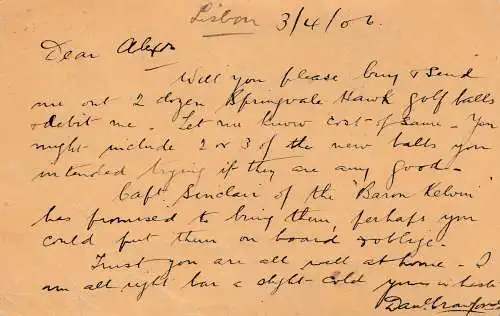 Lisbon 3/4/06.
Dear Alexr
Will you please buy & send
me out 2 dozen Springvale Hawk golf balls
& debit me. Let me know cost of same - You
might include 2 or 3 of the new balls you
intended trying if they are any good -
Capt. Sinclair of the "Baron Kelvin"
has promised to bring them, perhaps you
could put them on board & oblige -
Trust you are all well at home - I
am all right bar a slight cold yours in haste
Danl Crawford